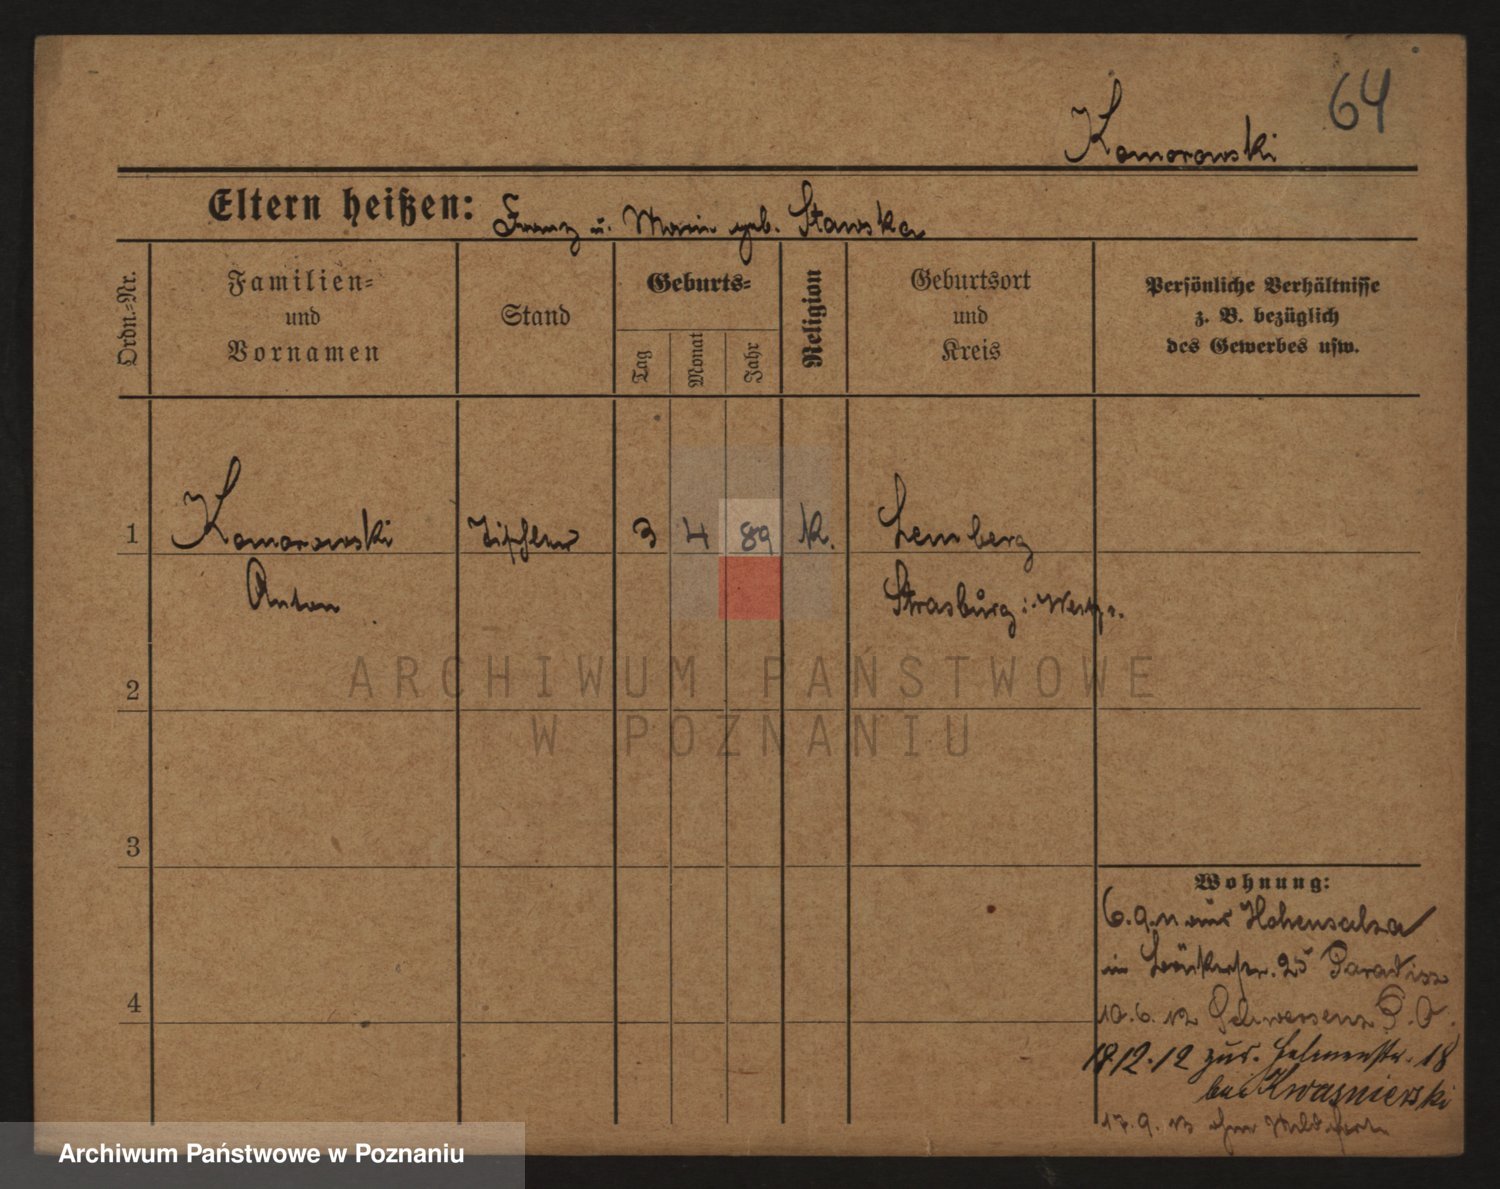 64
Komorowski
Eltern heißen: Franz u. Marie geb. Stawska
Ordn.=Nr.
Familien=
und
Vornamen
Stand
Geburts=
Tag
Monat
Jahr
Religion
Geburtsort
und
Kreis
Persönliche Verhältnisse
z. B. bezüglich
des Gewerbes usw.
1 Komorowski Tischler 3 4 89 K. Lemberg
Anton Strasburg i. Westpr.
ARCHIWUM PAŃSTWOWE
2
W POZNANIU
3
Wohnung:
6.9.11 aus Hohensalza
in 25
4
10.6.12 Schwersenz P. O.
18.12.12 zur. 18
bei Kwasniewski
17.9.13
Archiwum Państwowe w Poznaniu